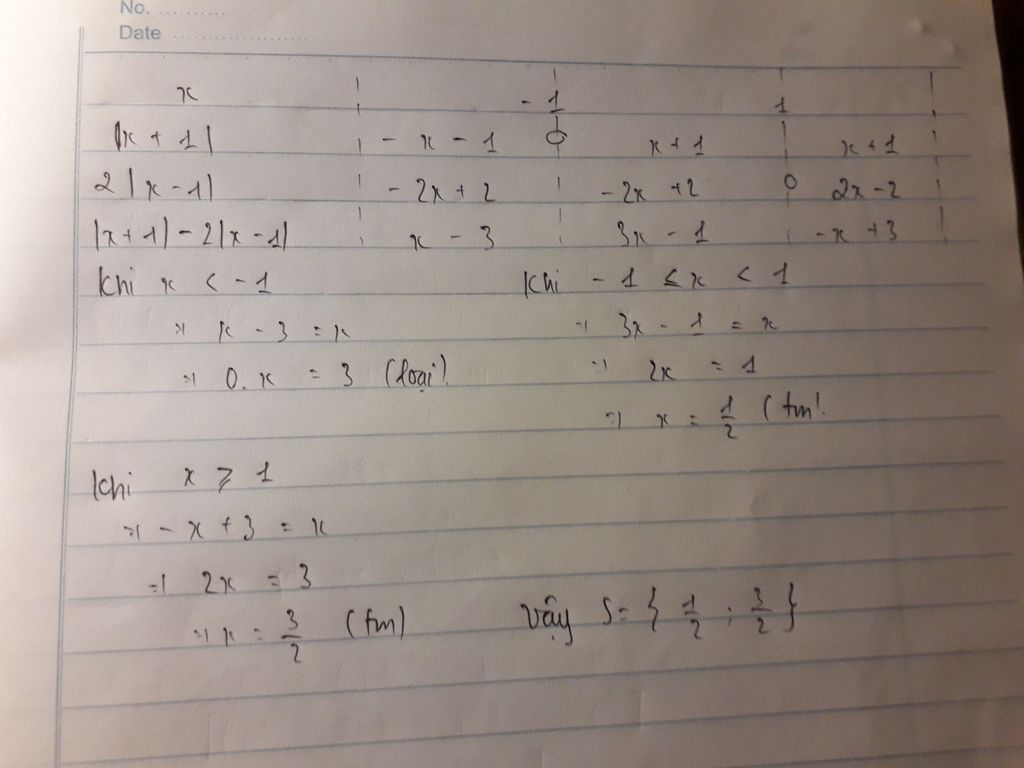 No. ..........
Date .....................
x -1 1
|x + 1| - x - 1 0 x + 1 x + 1
2|x - 1| - 2x + 2 - 2x + 2 0 2x - 2
|x + 1| - 2|x - 1| x - 3 3x - 1 - x + 3
Khi x < -1
=> x - 3 = x
=> 0.x = 3 (loại)
Khi - 1 ≤ x < 1
=> 3x - 1 = x
=> 2x = 1
=> x = 1/2 (tm)
Khi x ⩾ 1
=> - x + 3 = x
=> 2x = 3
=> x = 3/2 (tm)
Vậy S = { 1/2 ; 3/2 }